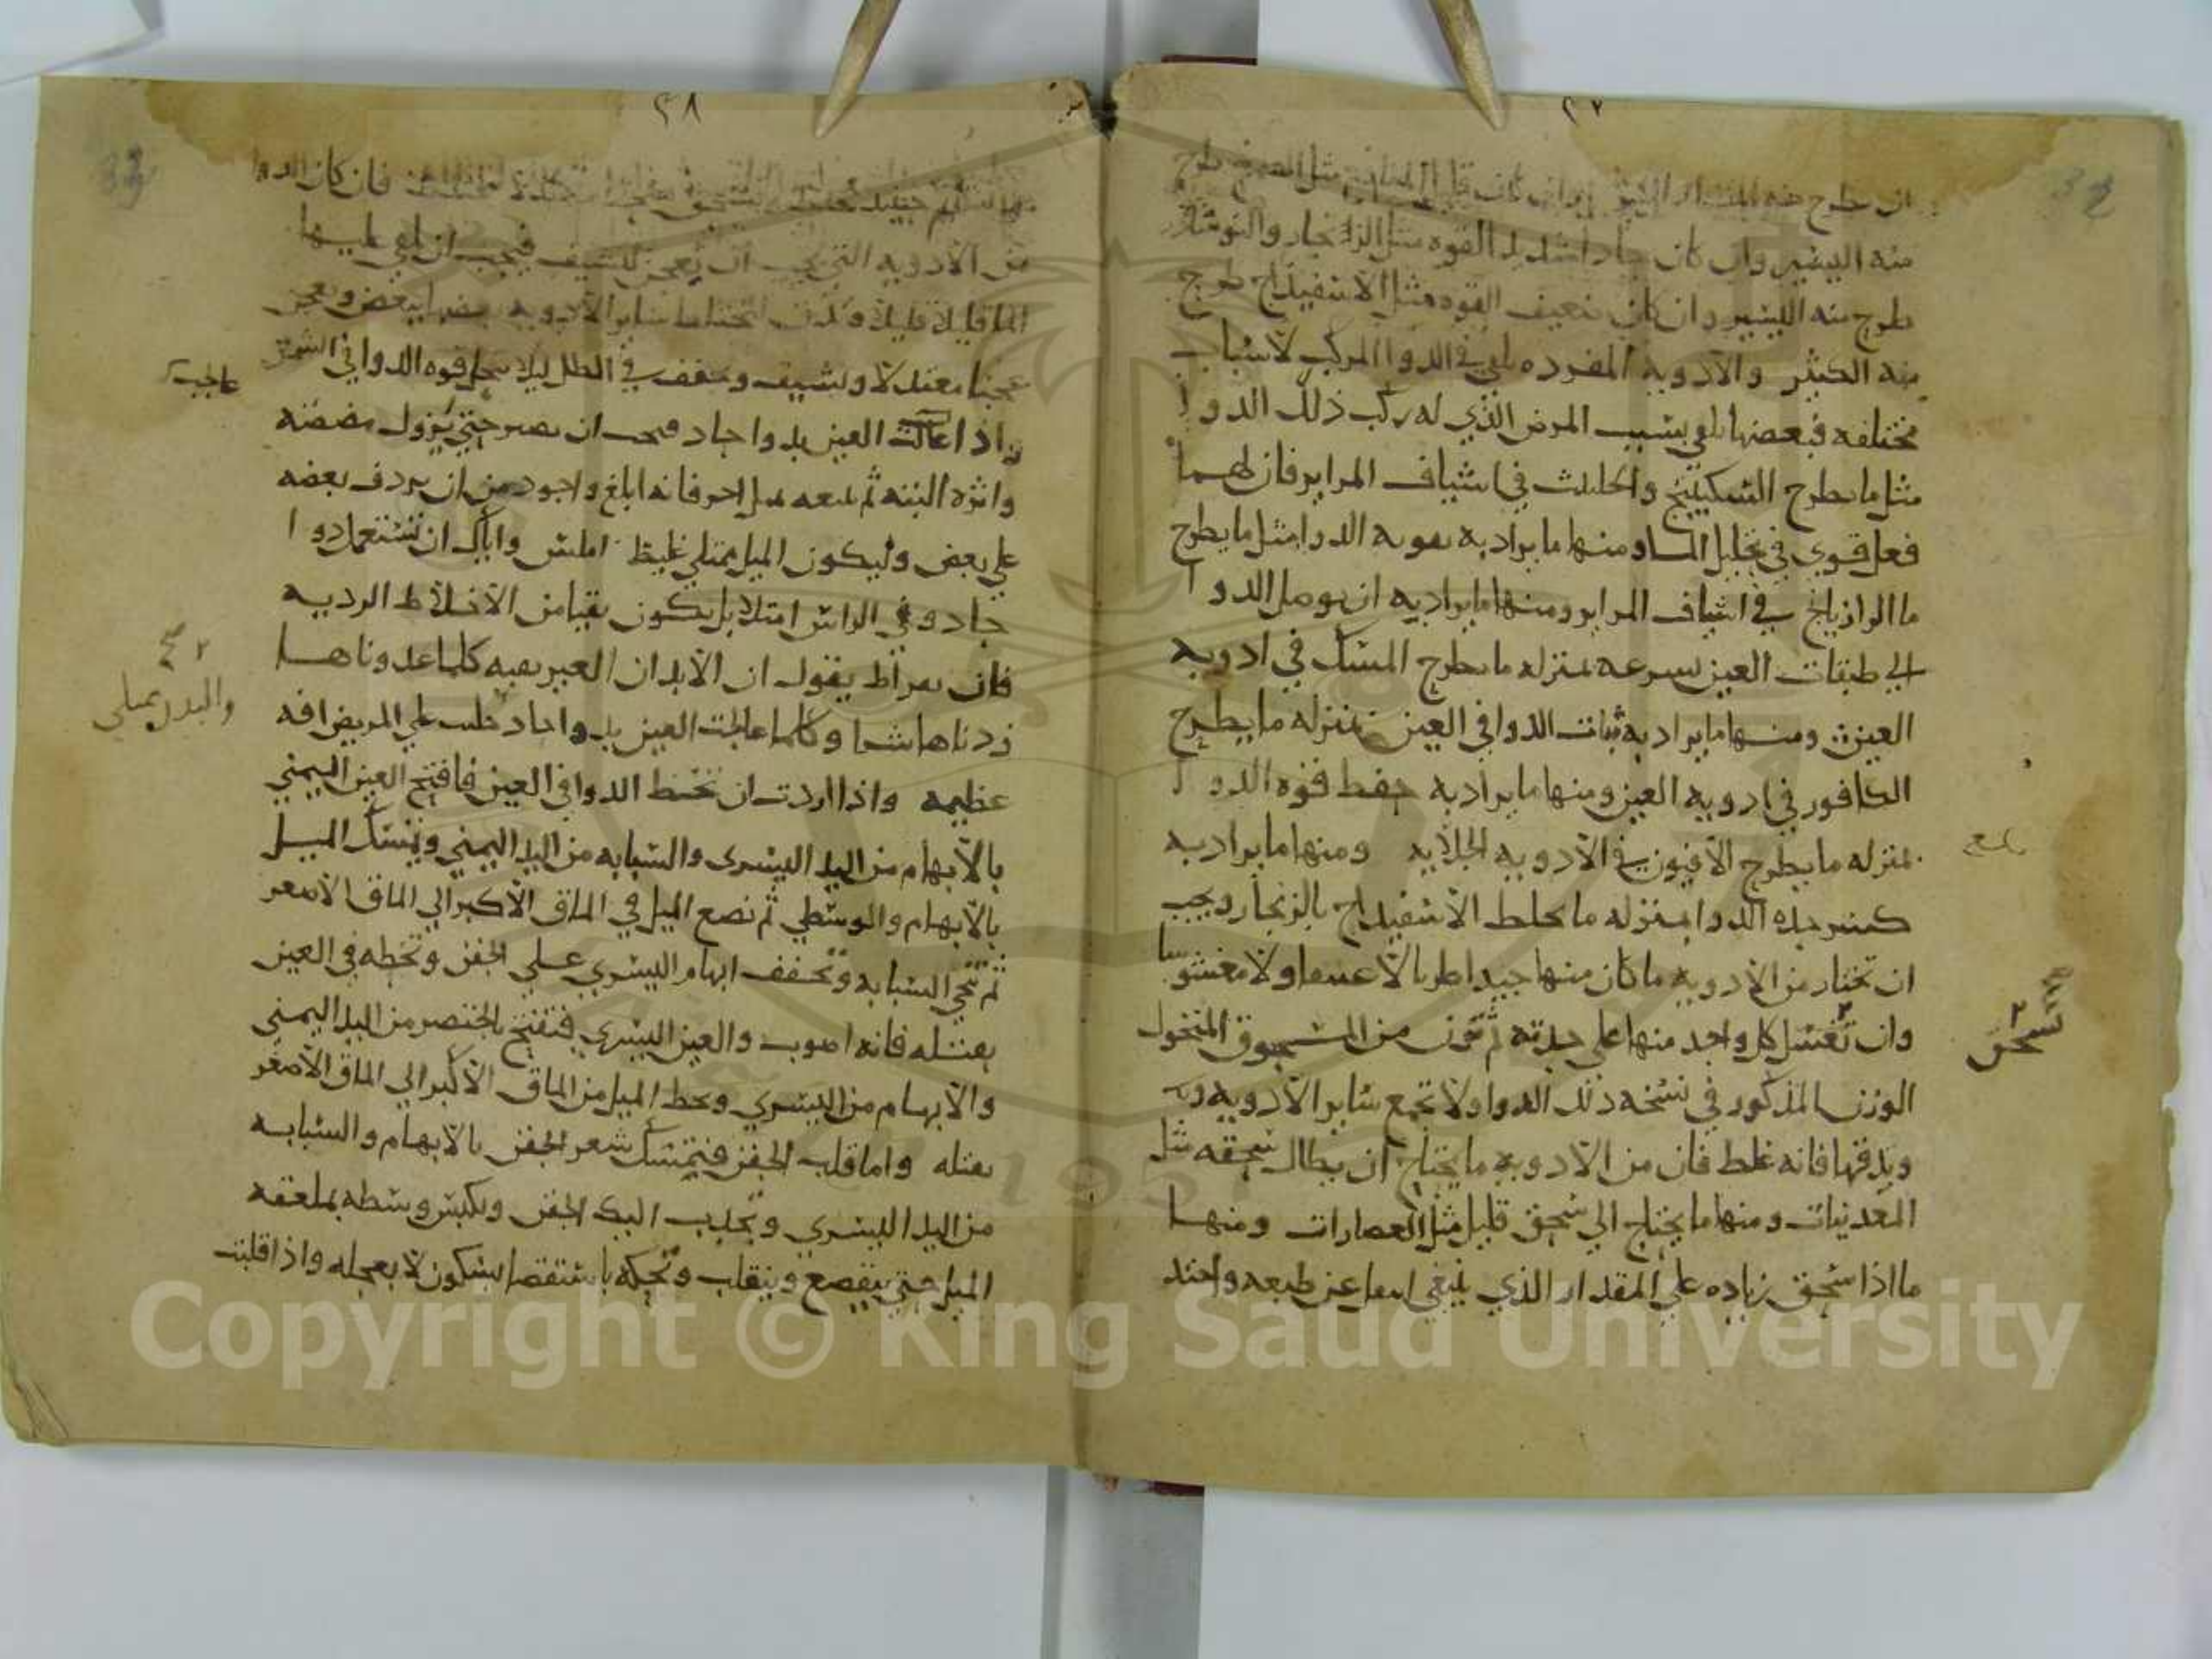 ٢٧
ان طرح منه المقدار اليسير وان كان قليل المنافع مثل طرح
منه اليسير وان كان حادا شديد القوه مثل الزنجار والنوشادر
طرح منه اليسير وان كان ضعيف القوه مثل الاسفيداج طرح
منه الكثير والادويه المفرده تلقي في الدوا المركب لاسباب
مختلفه فبعضها تلقي بسبب المرض الذي له ركب ذلك الدوا
مثل ما يطرح السكبينج والحلتيت في اشياف المراير فان لهما
فعل قوي في تحليل الما ومنها ما يراد به تقويه الدوا مثل ما يطرح
ما الرازيانج في اشياف المراير ومنها ما يراد به ان يوصل الدوا
الي طبقات العين بسرعه بمنزله ما يطرح المسك في ادويه
العين ومنها ما يراد به ثبات الدوا في العين بمنزله ما يطرح
الكافور في ادويه العين ومنها ما يراد به حفظ قوه الدوا
بمنزله ما يطرح الافيون في الادويه الجلايه ومنها ما يراد به
كسر حده الدوا بمنزله ما يخلط الاسفيداج بالزنجار ويجب
ان تختار من الادويه ما كان منها جيدا طريا لا عتيقا ولا مغشوشا
وان تغسل كل واحد منها علي حدته ثم تزن من المسحوق المنخول
تسحق
الوزن المذكور في نسخه ذلك الدوا ولا تجمع ساير الادويه
وتدقها فانه غلط فان من الادويه ما يحتاج ان يطال سحقه مثل
المعدنيات ومنها ما يحتاج الي سحق قليل مثل العصارات ومنها
ما اذا سحق زياده علي المقدار الذي ينبغي انتقل عن طبعه واحتد
٢٨
فان كان الدوا
من الادويه التي يجب ان تعجن لتشيف فيجب ان تلقي عليها
الما قليلا قليلا وتدق ساير الادويه بعضها ببعض وتعجن
عجنا معتدلا وتشيف وتجفف في الظل ليلا تنحل قوه الدوا في الشمس
واذا عالجت العين بدوا حاد فيجب ان تصبر حتي يزول مضضه
عالجت
واثره البته ثم تتبعه بميل اخر فانه ابلغ واجود من ان يردف بعضه
علي بعض وليكون الميل ممتلي غليظ املس واياك ان تستعمل دوا
حاد وفي الراس امتلا بل يكون نقيا من الاخلاط الرديه
فان بقراط يقول ان الابدان الغير نقيه كلما غدوناها
والبدن ممتلي
زدناها شرا وكلما عالجت العين بدوا حاد جلب علي المريض افه
عظيمه واذا اردت ان تحط الدوا في العين فافتح العين اليمني
بالابهام من اليد اليسرى والسبابه من اليد اليمني وتمسك الميل
بالابهام والوسطي ثم تضع الميل في الماق الاكبر الي الماق الاصغر
ثم تنحي السبابه وتخفف ابهام اليسري علي الجفن وتحطه في العين
بفتله فانه اصوب والعين اليسري فتفتح بالخنصر من اليد اليمني
والابهام من اليسري وتحط الميل من الماق الاكبر الي الماق الاصغر
بفتله واما قلب الجفن فتمسك شعر الجفن بالابهام والسبابه
من اليد اليسري وتجذب اليك الجفن وتكبس وسطه بملعقه
الميل حتي يتقصع وينقلب وتحكه باستقصا بسكون لا بعجله واذا قلبت
Copyright © King Saud University
1957